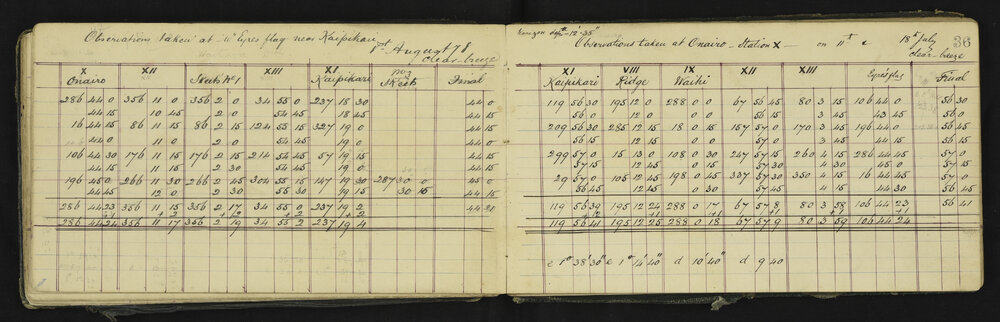 Observations taken at "u" Eyres flag near Kaipikari
1st August 78
clear breeze
X XII XIII XI No 3
Onairo Skeets No 1 Kaipikari Skeets Final
286 44 0 356 11 0 356 2 0 34 55 0 237 18 30 44 0
44 45 10 45 2 0 54 45 18 45 44 45
16 44 45 86 11 15 86 2 15 124 55 15 327 19 0 44 15
44 0 11 0 2 0 54 45 19 0 44 0
106 44 30 176 11 15 176 2 15 214 54 45 57 19 15 44 15
44 15 11 15 2 30 54 45 19 0 44 15
196 45 0 266 11 30 266 2 45 304 55 15 147 19 30 287 30 0 45 0
44 45 12 0 2 30 55 30 19 15 30 15 44 15
286 44 23 356 11 15 356 2 17 34 55 0 237 19 2 44 21
+1 +2 +2 +2 +2
286 44 24 356 11 17 356 2 19 34 55 2 237 19 4
36
- 12' 35"
Observations taken at Onairo - Station X - on 11th & 18th July
clear breeze
XI VIII IX XII XIII
Kaipikari Ridge Waihi Eyres flag Final
119 56 30 195 12 0 288 0 0 67 56 45 80 3 15 106 44 0 56 30
56 0 12 0 0 0 56 15 3 45 43 45 56 0
209 56 30 285 12 15 18 0 15 157 57 0 170 3 45 196 44 0 56 45
57 0 12 45 0 15 57 0 3 45 44 15 57 0
299 57 0 15 13 0 108 0 30 247 57 15 260 4 15 286 44 45 57 0
57 15 12 45 0 0 57 30 4 30 45 0 57 15
29 57 0 105 12 45 198 0 45 337 57 30 350 4 15 16 44 45 57 0
56 45 12 45 0 30 57 45 4 15 44 30 56 45
119 56 39 195 12 24 288 0 17 67 57 8 80 3 58 106 44 23 56 41
+2 +1 +1 +1 +1 +1
119 56 41 195 12 25 288 0 18 67 57 9 80 3 59 106 44 24
e 1° 38' 30" e 1° 14' 40" d 10' 40" d 9 40